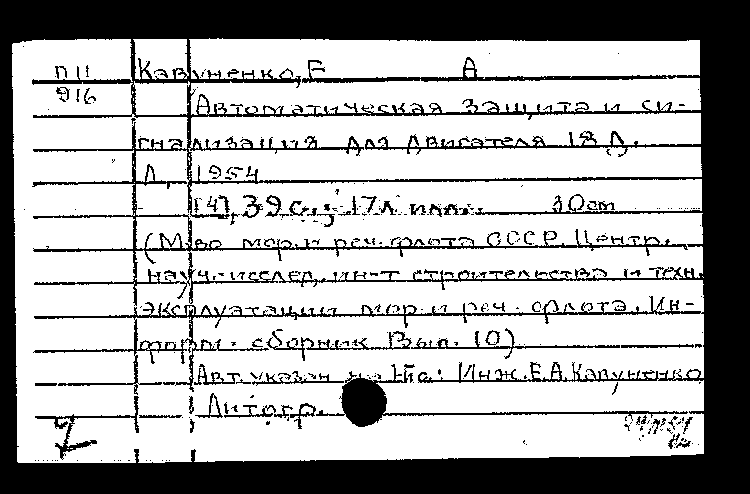 П11 Кавуненко, Е А
916 Автоматическая защита и си-
гнализация для двигателя 18 Д.
Л., 1954
[4], 39 с.; 17 л илл. 30 см
(М-во мор. и реч. флота СССР. Центр.
науч.-исслед. ин-т строительства и техн.
эксплуатации мор и реч. флота. Ин-
форм. сборник Вып. 10)
Авт. указан на 1-й с.: Инж. Е.А. Кавуненко
Литогр.